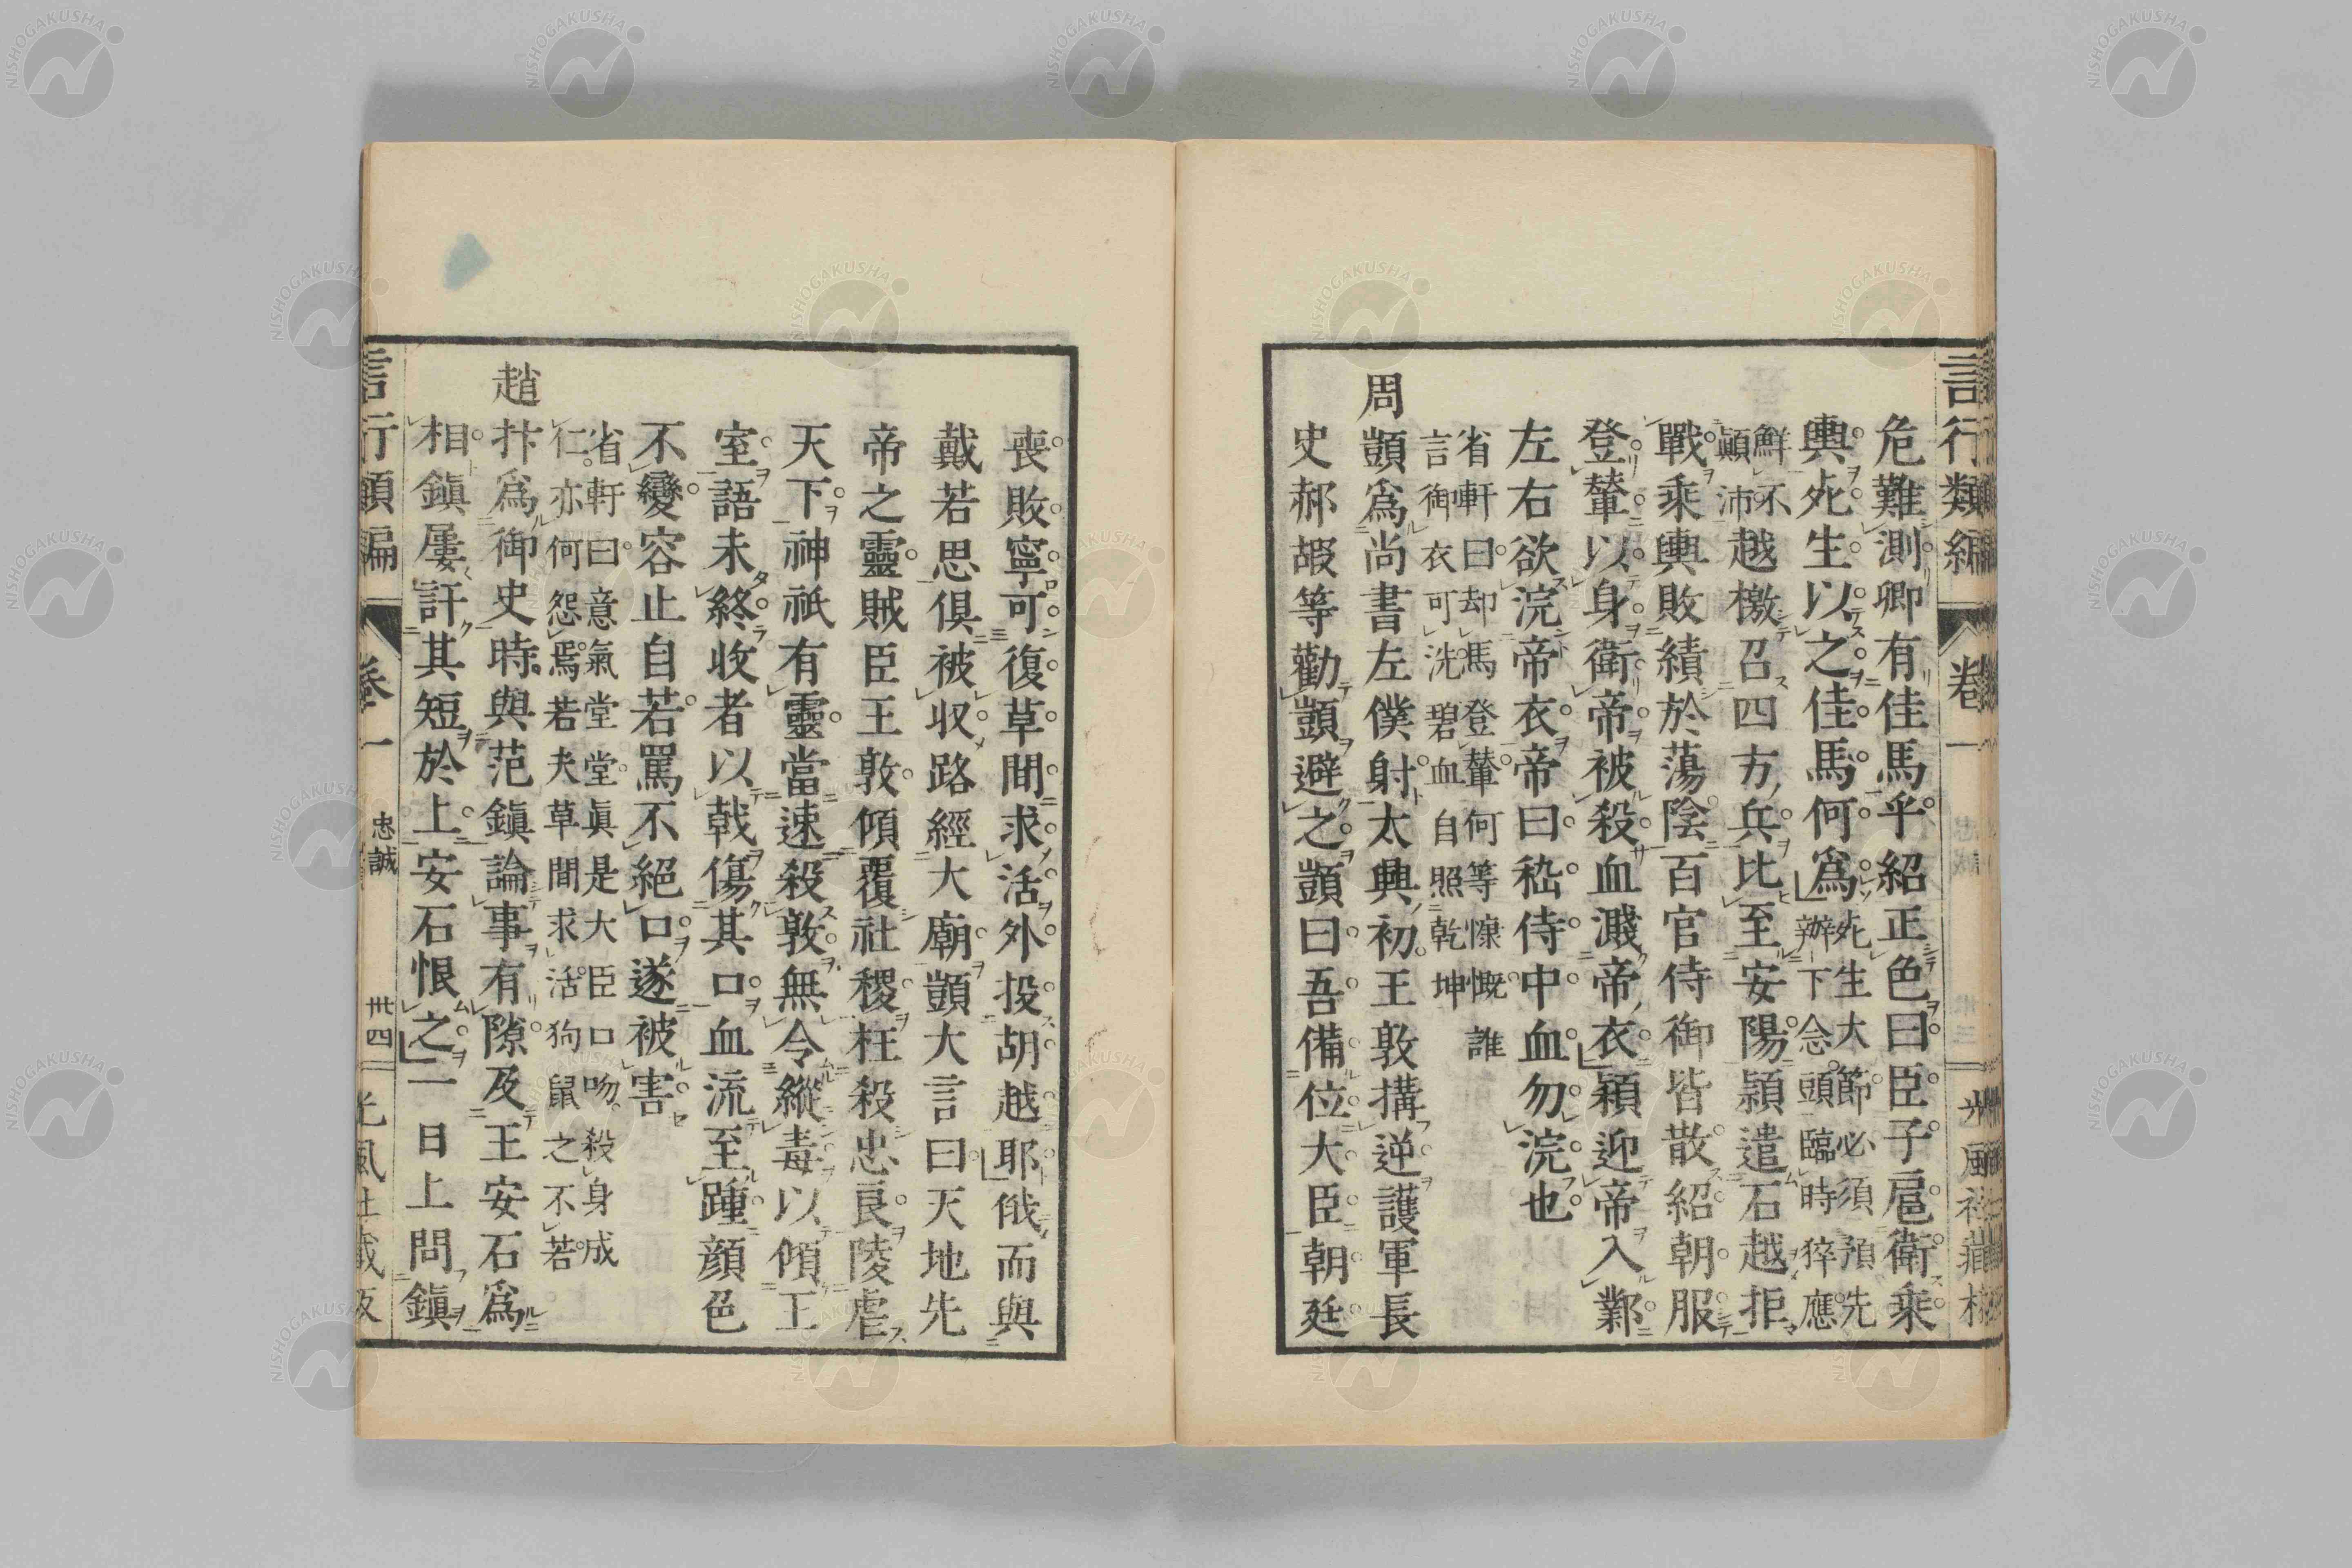 言行類編 卷一
光風社藏板
危難測卿有佳馬乎紹正色曰臣子扈衛乘
輿死生以之佳馬何爲死生大節必須預先
辦下念頭臨時猝應
鮮不
顚沛越檄召四方兵比至安陽穎遣石越拒
戰乘輿敗績於蕩陰百官侍御皆散紹朝服
登輦以身衛帝被殺血濺帝衣穎迎帝入鄴
左右欲浣帝衣帝曰嵇侍中血勿浣也
省軒曰却馬登輦何等慷慨誰
言御衣可洗碧血自照乾坤
周顗爲尚書左僕射太興初王敦搆逆護軍長
史郝嘏等勸顗避之顗曰吾備位大臣朝廷
喪敗寧可復草間求活外投胡越耶俄而與
戴若思俱被收路經大廟顗大言曰天地先
帝之靈賊臣王敦傾覆社稷枉殺忠良陵虐
天下神祇有靈當速殺敦無令縱毒以傾王
室語未終收者以戟傷其口血流至踵顔色
不變容止自若罵不絕口遂被害
省軒曰意氣堂堂眞是大臣口吻殺身成
仁亦何怨焉若夫草間求活狗鼠之不若
趙抃爲御史時與范鎭論事有隙及王安石爲
相鎭屢訐其短於上安石恨之一日上問鎭
言行類編 卷一 忠誠 卅四 光風社藏板
NISHOGAKUSHA